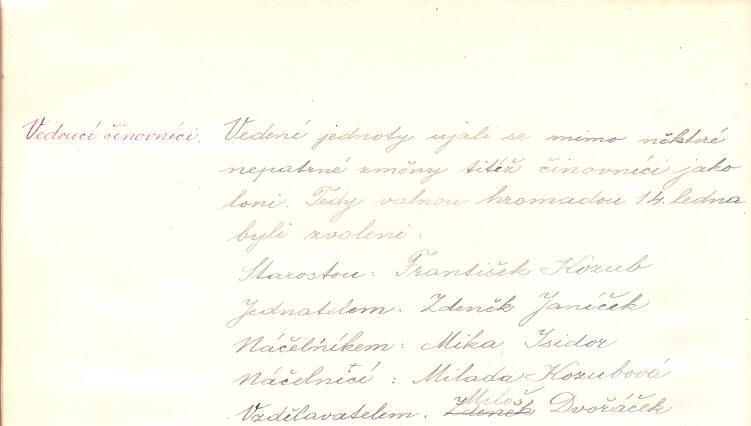 Vedoucí činovníci.
Vedení jednoty ujali se mimo některé
nepatrné změny titéž činovníci jako
loni. Tedy valnou hromadou 14. ledna
byli zvoleni:
Starostou: František Kozub
Jednatelem: Zdeněk Janíček
Náčelníkem: Mika Isidor
Náčelnicí: Milada Kozubová
Miloš
Vzdělavatelem. Zdeněk Dvořáček